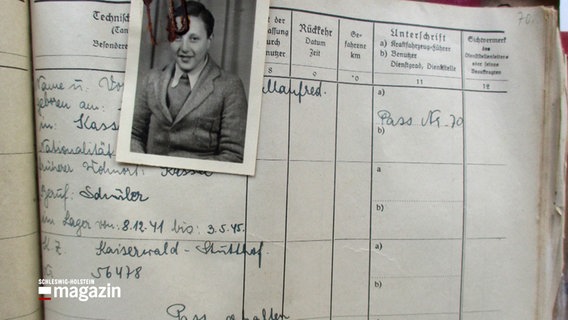 Technisch
(Tan
Besondere
der
fassung
durch
Benutzer
Rückkehr
Datum
Zeit
Ge-
fahrene
km
Unterschrift
a) Kraftfahrzeug-Führer
b) Benutzer
Dienstgrad, Dienststelle
Sichtvermerk
des
Dienststellenleiters
oder seines
Beauftragten
70.
8 9 10 11 12
Name u. Vor Manfred.
geboren am:
in: Kassel
Nationalität
früherer Wohnort: Kassel
Beruf: Schüler
im Lager von: 8.12.41 bis: 3.5.45.
K Z. Kaiserwald - Stutthof.
56478
Pass erhalten
a)
Pass Nr. 70
b)
a
b)
a)
b)
a)
SCHLESWIG-HOLSTEIN
magazin